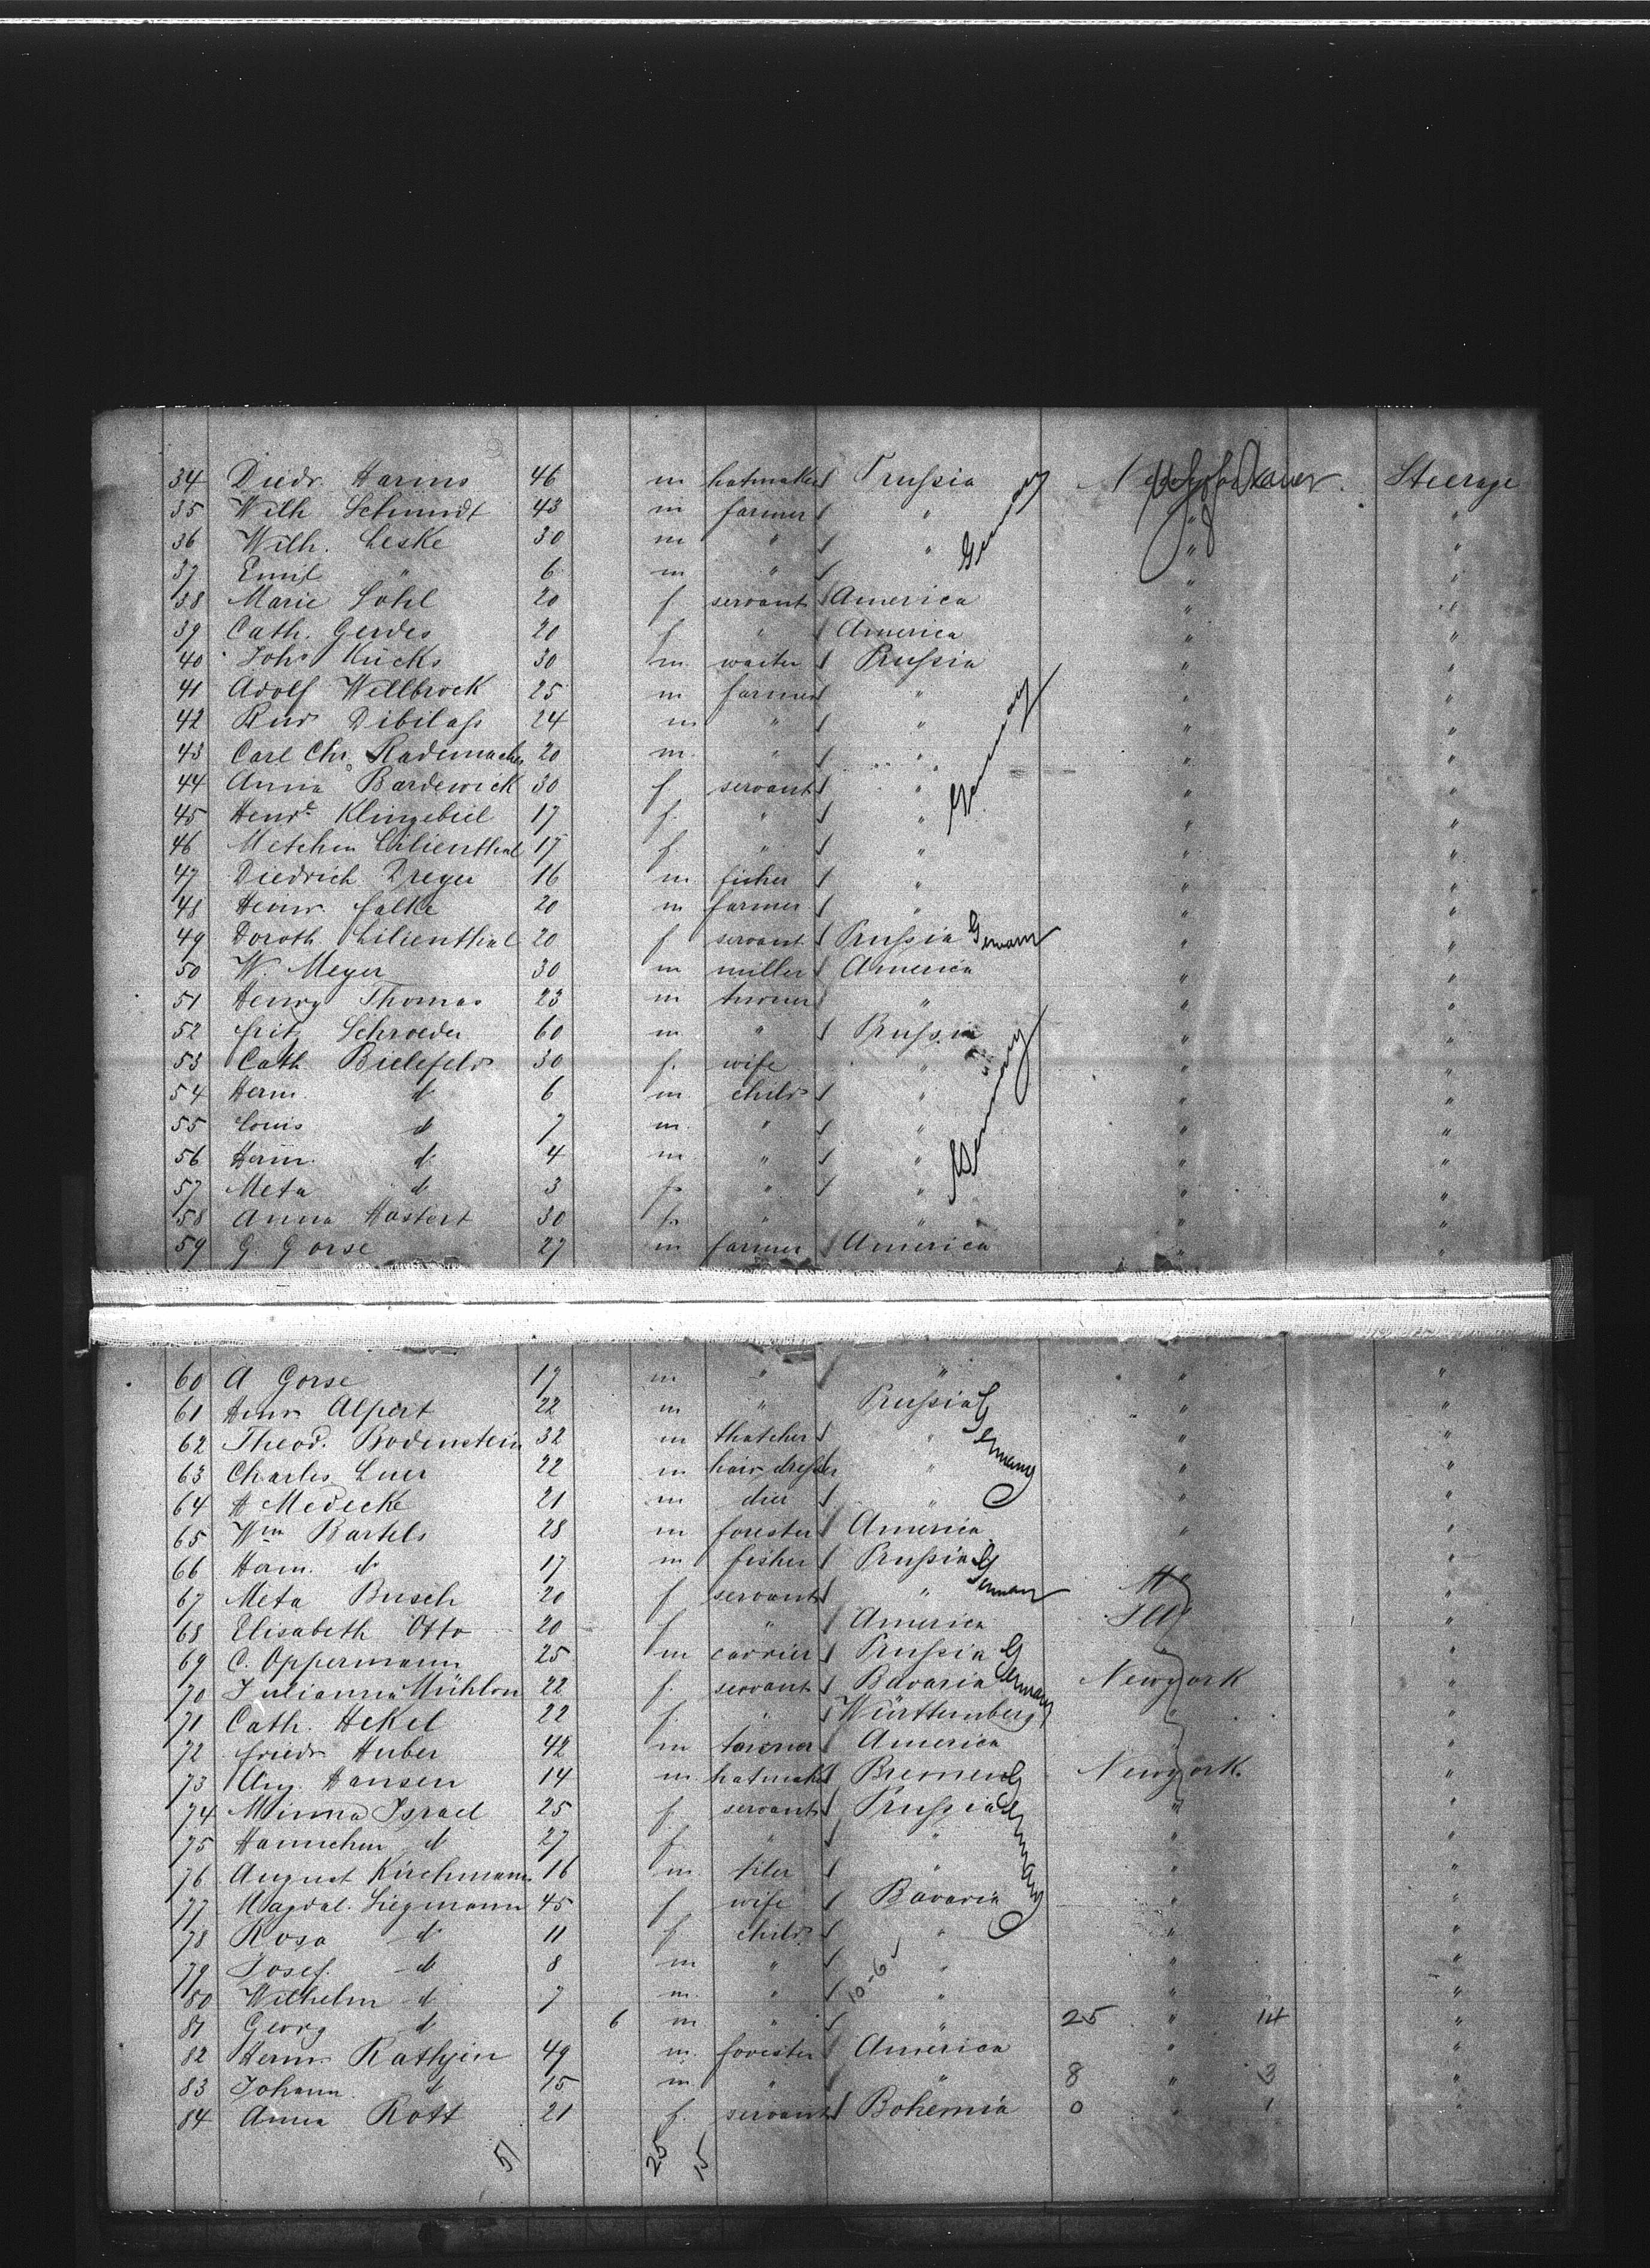 34 Diedr. Harms 46 m hatmaker Prussia Steerage
35 Wilh Schmidt 43 m farmer " " "
36 Wilh. Leske 30 m " " Germany " "
37 Emil " 6 m " " "
38 Marie Sohl 20 f. servant America " "
39 Cath. Gerdes 20 f " America " "
40 Joh. Kücks 30 m waiter Prussia " "
41 Adolf Wellbrock 25 m farmer " " "
42 Rud Dibilass 24 m " " " "
43 Carl Chr. Rademacher 20 m. " " Germany " "
44 Anna Bardewick 30 f servant " " "
45 Henr. Klingebiel 17 f. " " " "
46 Metchen Lilienthal 17 f " " " "
47 Diedrich Dreyer 16 m fisher " " "
48 Henr. Falke 20 m farmer " " "
49 Doroth Lilienthal 20 f servant Prussia German " "
50 W. Meyer 30 m miller America " "
51 Henry Thomas 23 m turner " " "
52 Fritz Schroeder 60 m " Prussia " "
53 Cath. Bielefeld 30 f. wife " " "
54 Herm. do 6 m child " Germany " "
55 Louis do 7 m. " " " "
56 Herm. do 4 m " " " "
57 Meta do 3 f. " " " "
58 Anna Hastert 30 f. " " " "
59 G. Gorse 27 m farmer America " "
60 A Gorse 17 m " " " "
61 Henr Alpert 22 m " Prussia Germany " "
62 Theod. Bodenstein 32 m thatcher " " "
63 Charles Luer 22 m hair dresser " " "
64 H Medecke 21 m dier " " "
65 Wm Bartels 28 m forester America " "
66 Herm. do 17 m fisher Prussia German "
67 Meta Busch 20 f servant " "
68 Elisabeth Otto 20 f " America Ill "
69 C. Oppermann 25 m carrier Prussia German "
70 Julianna Mühlon 22 f. servant Bavaria Newyork "
71 Cath. Hekel 22 f. " Württemberg " "
72 Friedr Huber 42 m turner America " "
73 Aug. Hansen 14 m hatmaker Bremen Newyork "
74 Minna Israel 25 f servant Prussia Germany " "
75 Hannchen do 27 f " " " "
76 August Kirchmann 16 m tiler " " "
77 Magdal. Siegmann 45 f wife Bavaria " "
78 Rosa do 11 f child " " "
79 Josef do 8 m " " " "
80 Wilhelm do 7 m. " 10-6 " " "
81 Georg do 6 m " " 25 " 14 "
82 Herm Rathjen 49 m. forester America " "
83 Johann do 15 m " " 8 " 3 "
84 Anna Rott 21 f. servant Bohemia 0 " 1 "
51 25 15